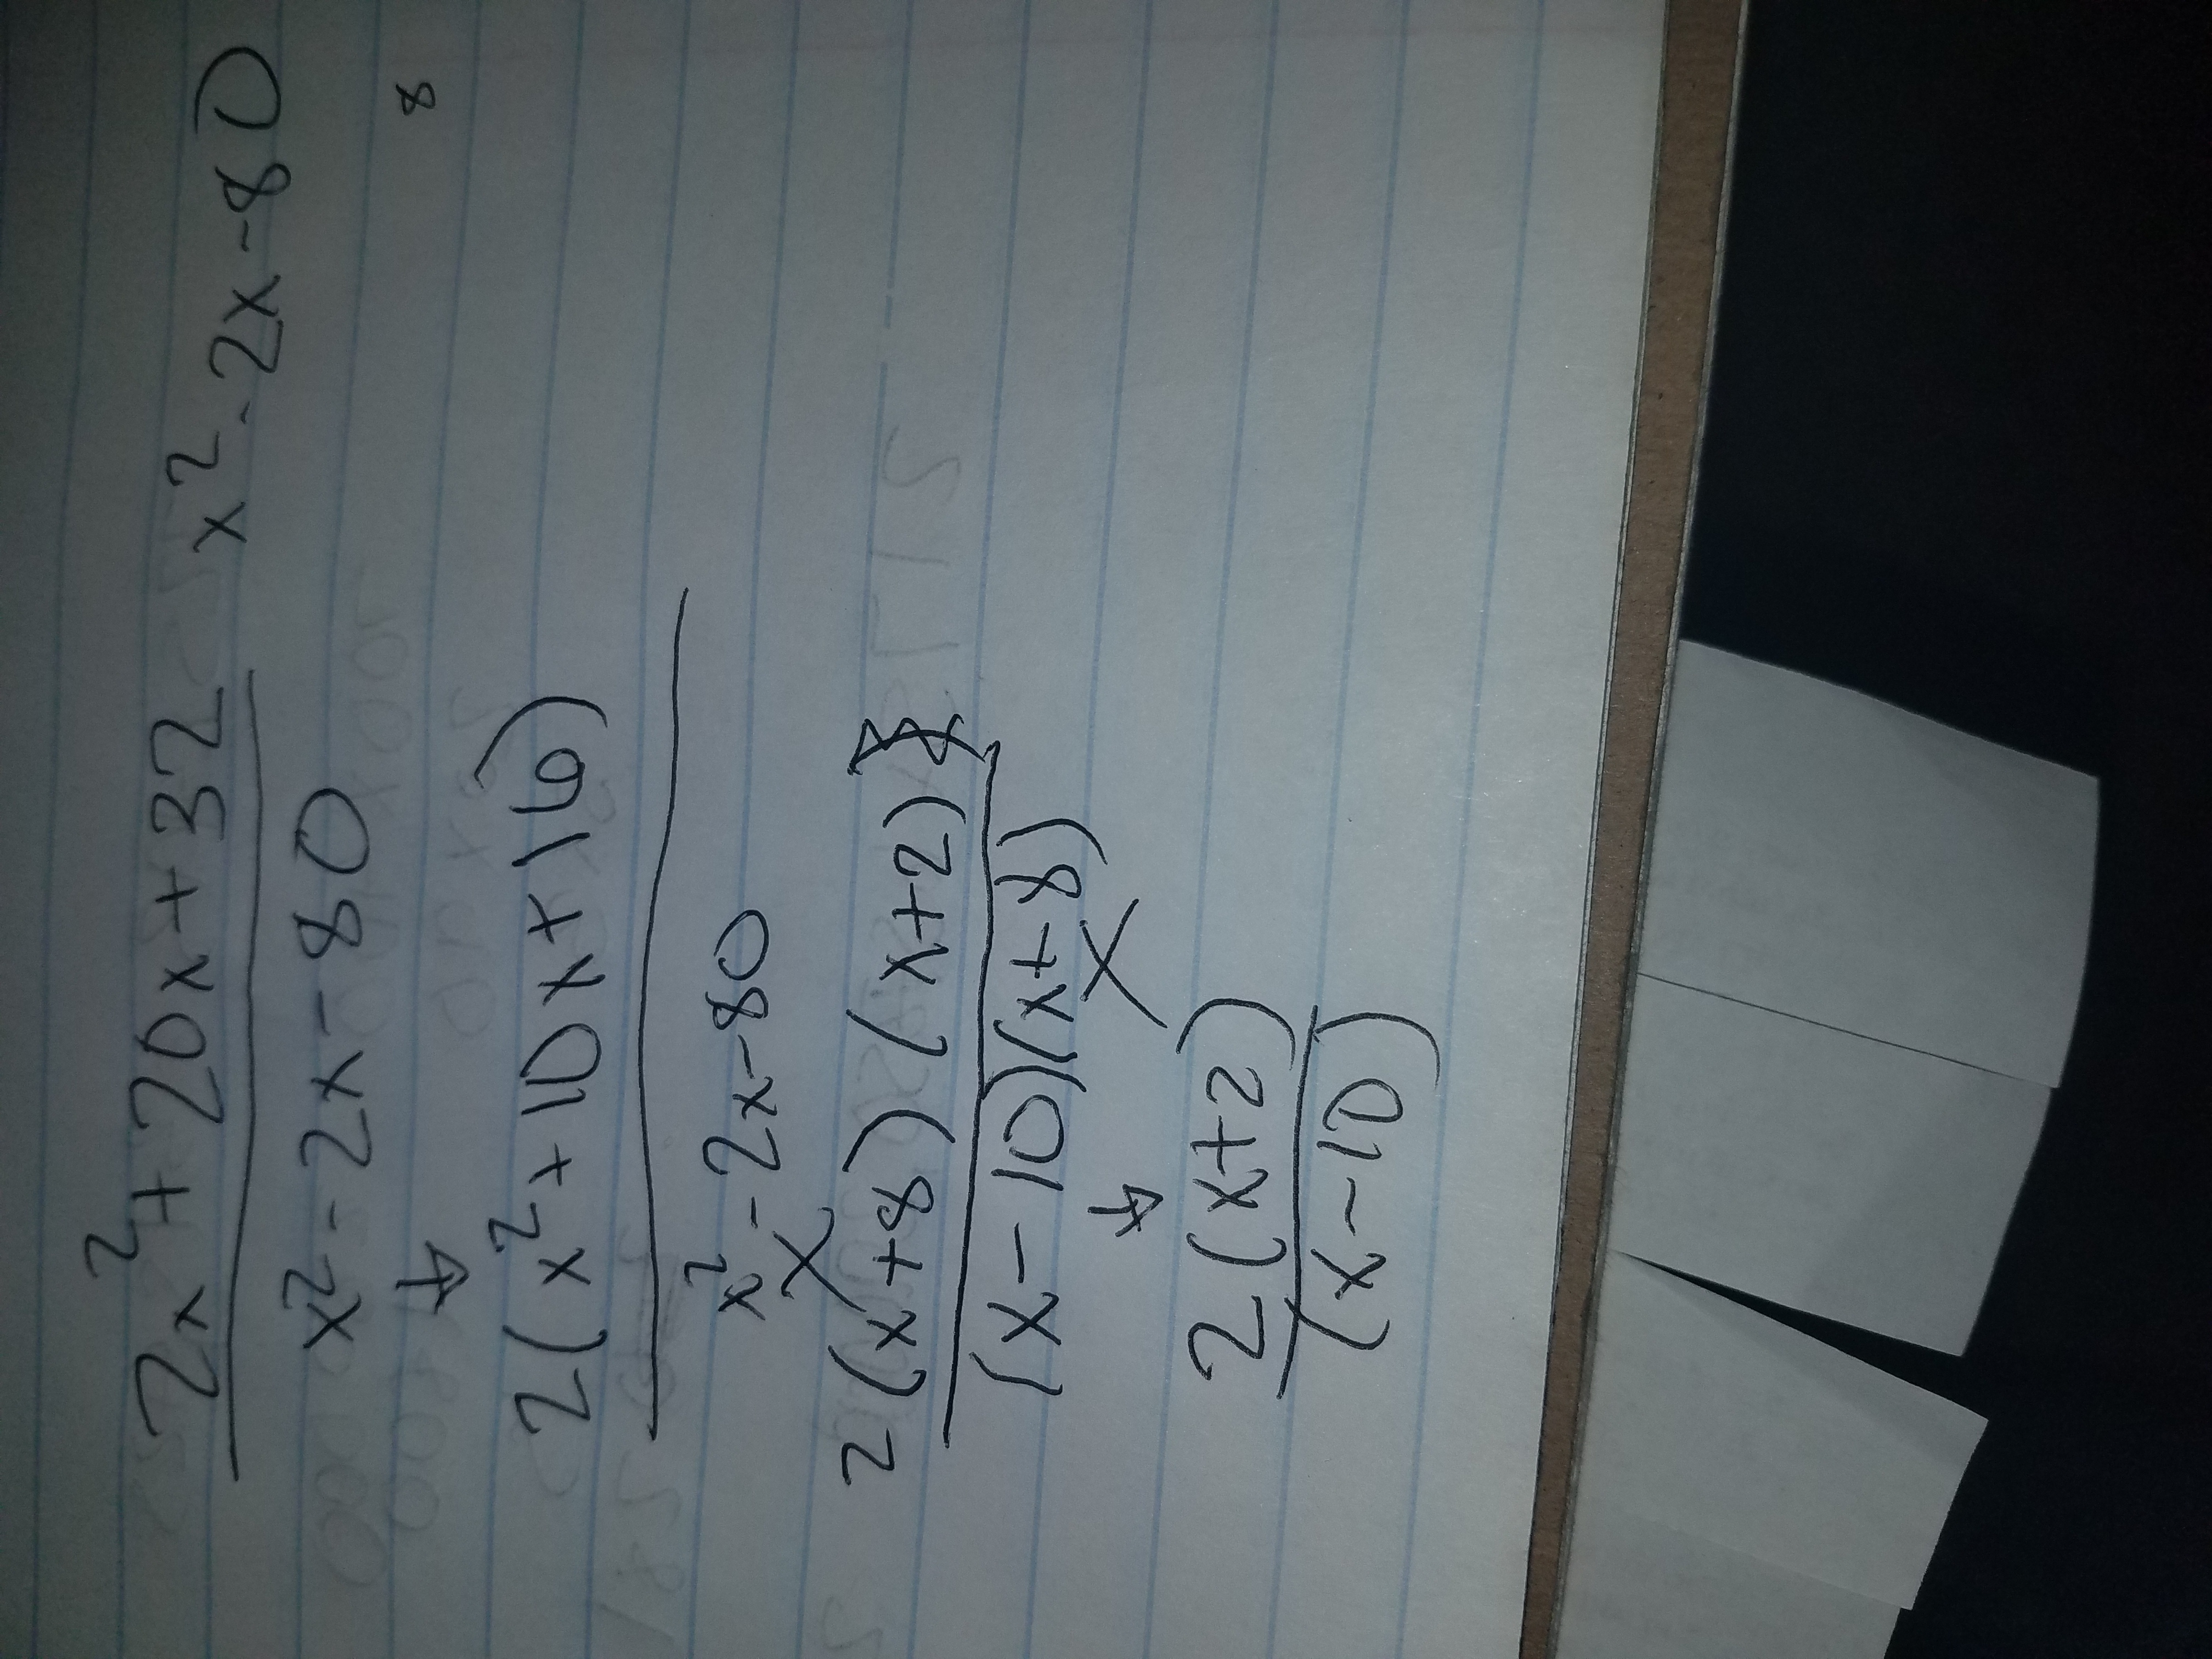 2x² + 20x + 32 x² - 2x - 80
x² - 2x - 80 8
↓
2(x² + 10x + 16)
x² - 2x - 80
2(x+8)(x+2)
(x - 10)(x+8)
↓
2(x+2)
(x - 10)